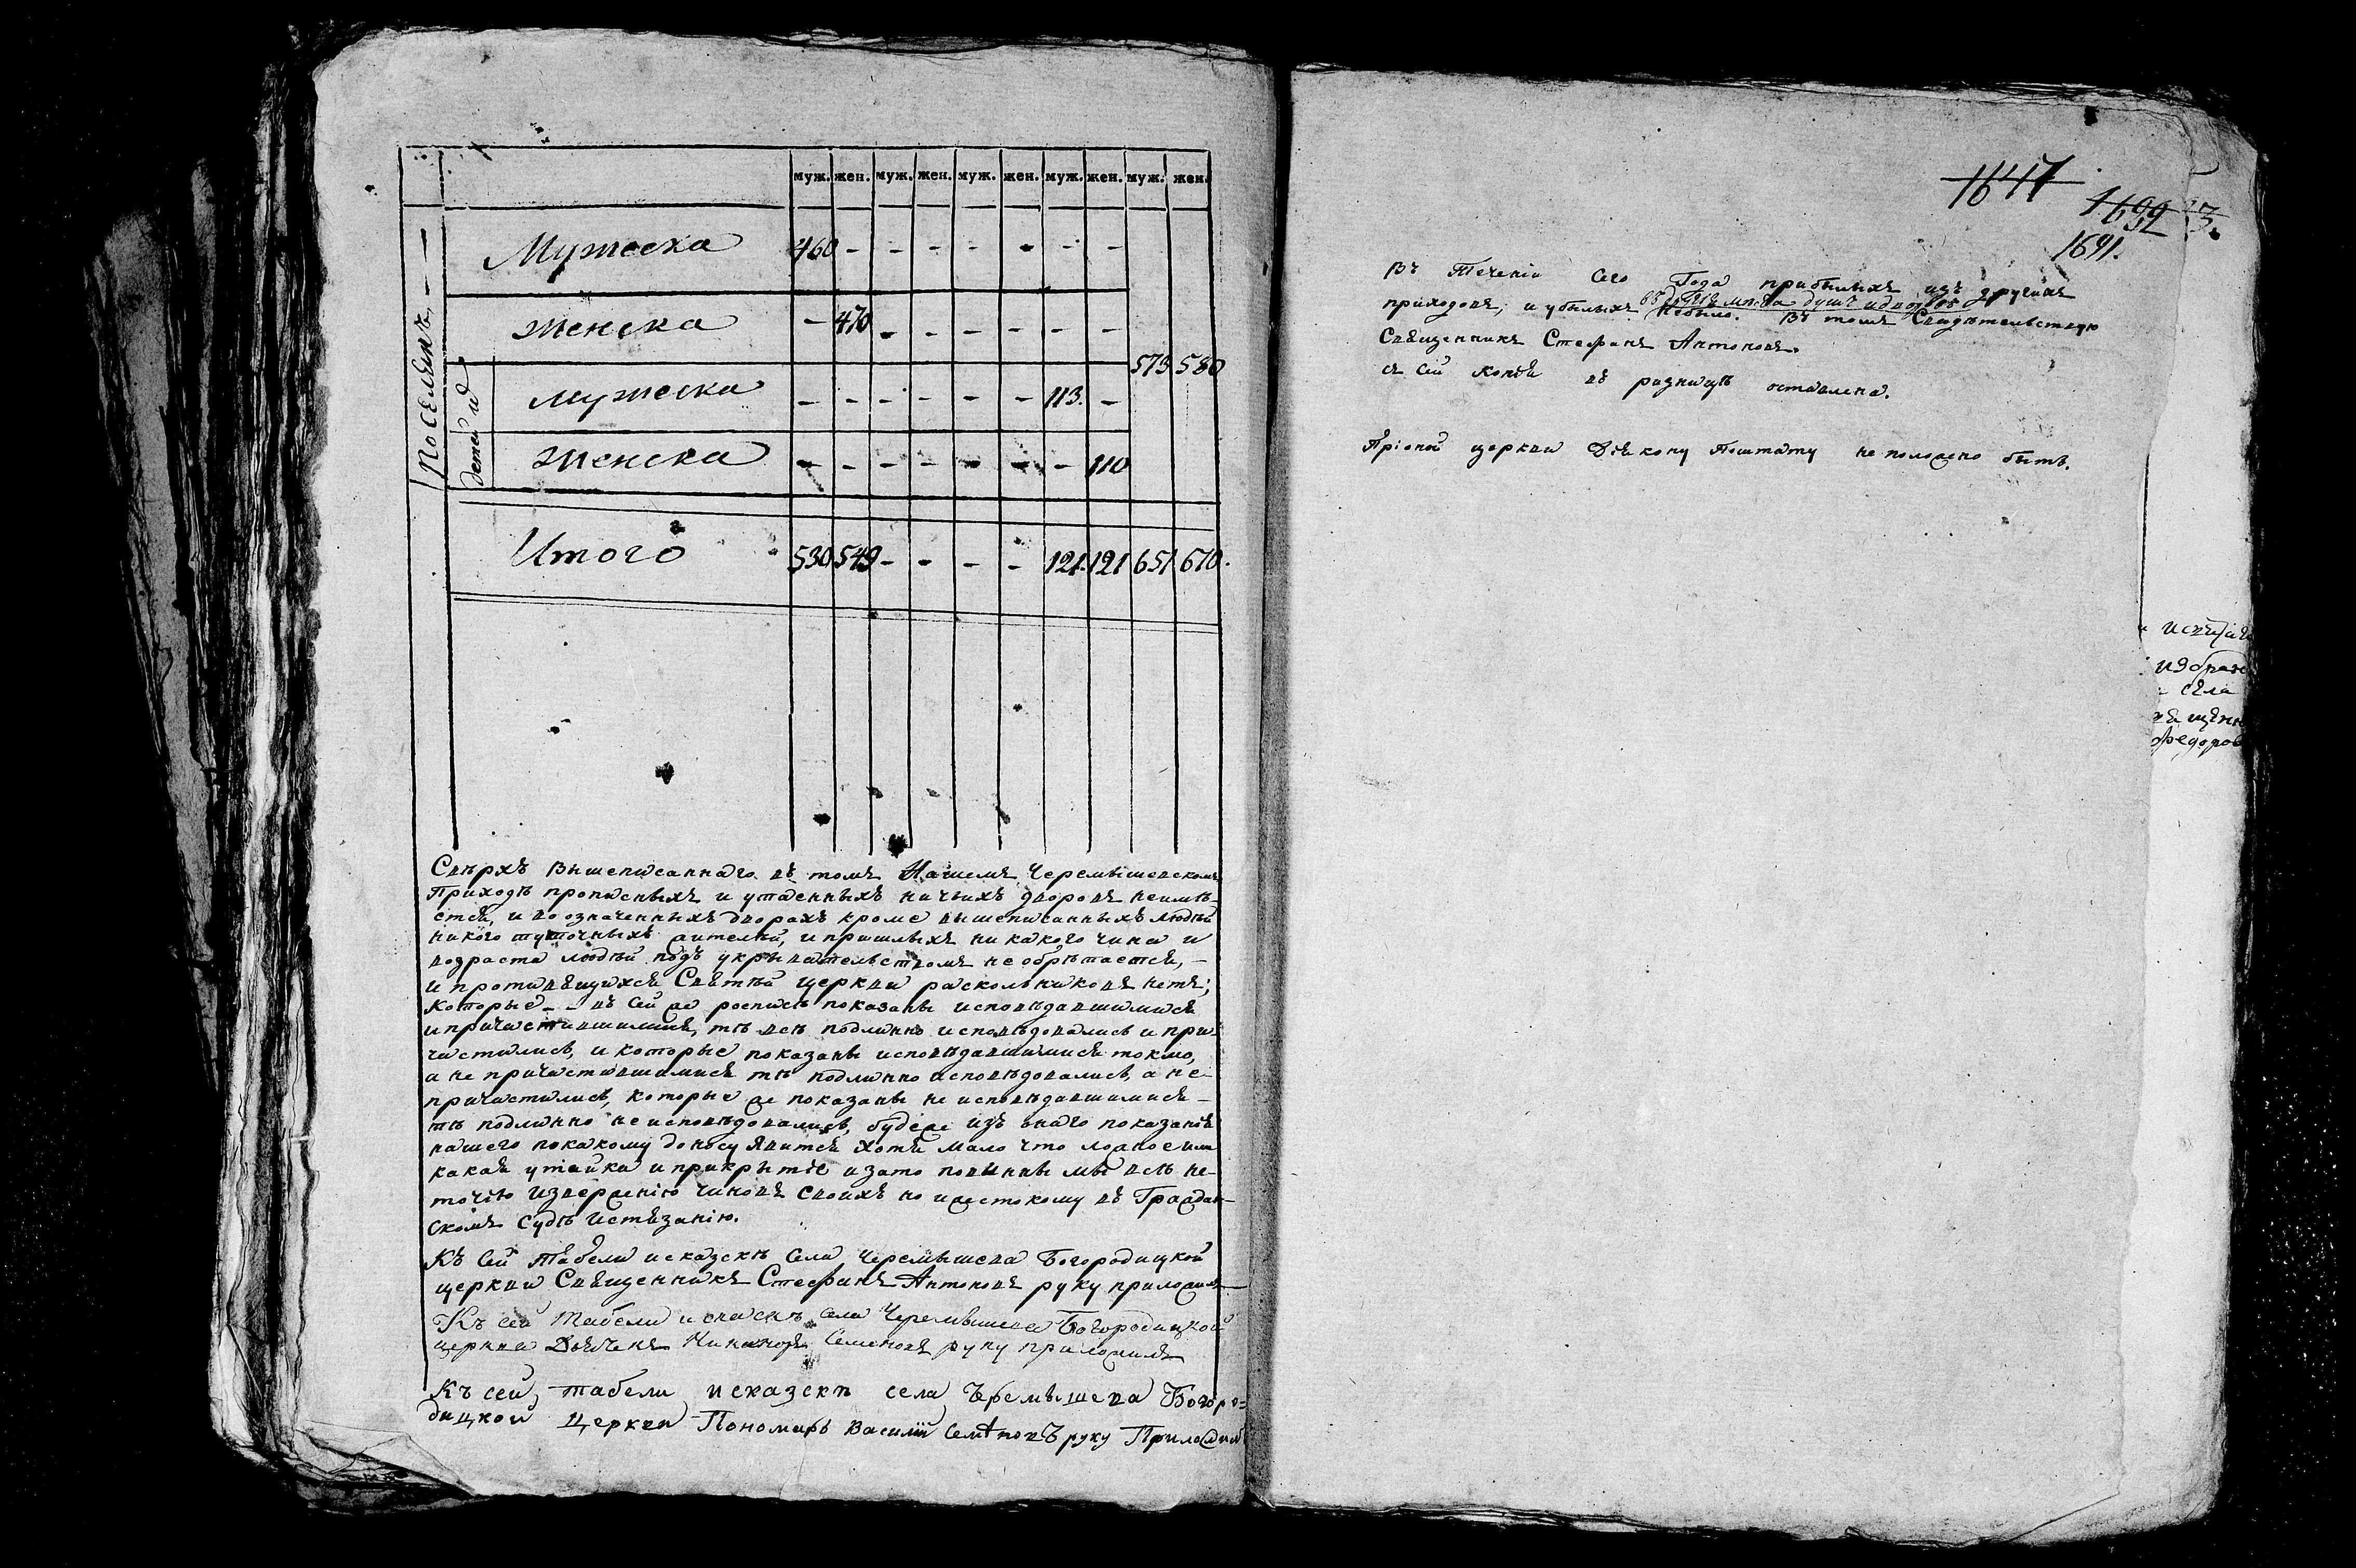 муж. жен. муж. жен. муж. жен. муж. жен. муж. жен.
Поселянъ
Мужеска 460 - - - - - - -
женска - 470 - - - - - -
573 580
детей ид
мужеска - - - - - - 113. -
женска - - - - - - - 110
Итого 530 549 - - - - 121. 121 651 670.
Свѣрхъ вышеписаннаго въ томъ Нашемъ Черемышевскомъ
Приходѣ прописныхъ и утаенныхъ ничьихъ дворовъ неимѣ-
етсѧ, и во означенныхъ дворахъ кроме вышеписанныхъ людѣй
никого туточныхъ жителѣй, и пришлыхъ никакого чина и
возраста людѣй подъ укрывателствомъ не обрѣтаетсѧ, -
и противѧщихсѧ Свѧтѣй церкви раскольниковъ нетъ;
которые - - въ сей же росписѣ показаны исповѣдавшимисѧ
и причастившимисѧ, тѣ всѣ подлинно исповѣдовались и при-
частились, и которые показаны исповѣдавшимисѧ токмо,
а не причастившимисѧ тѣ подлинно исповѣдовались, а не-
причастились, которые же показаны не исповѣдавшимисѧ -
тѣ подлинно не исповѣдовались, будеже изъ онаго показанїѧ
нашего покакому доносу ѧвитсѧ хотѧ мало что ложное или
какаѧ утайка и прикрытїе и зато повинны мы всѣ не-
точїю изверженїю чиновъ своихъ но и жестокому въ Граждан-
скомъ судѣ истѧзанїю.
Къ сей табели и сказскѣ села Черемышева Богородицкой
церкви Свѧщенникъ Стефанъ Антоновъ руку приложилъ
Къ сей табели и скаскѣ села Черемышева Богородицкой
церкви Дьячекъ Никаноръ Семеновъ руку приложилъ
Къ сей табели и сказскѣ села Черемышева Богоро=
дицкой церкви Пономарь Василий Семѧновъ руку Приложилъ
1647
1692
1691.
3.
Въ теченїи сего Года прибылыхъ изъ другихъ
приходовъ, и убылыхъ небыло. Въ томъ Свидѣтельствую
Свѧщенникъ Стефанъ Антоновъ.
съ сей копїѧ въ ризницѣ оставлена.
При оной церкви Дїѧкону Поштату не положено быть.
изобра
села
Федоров